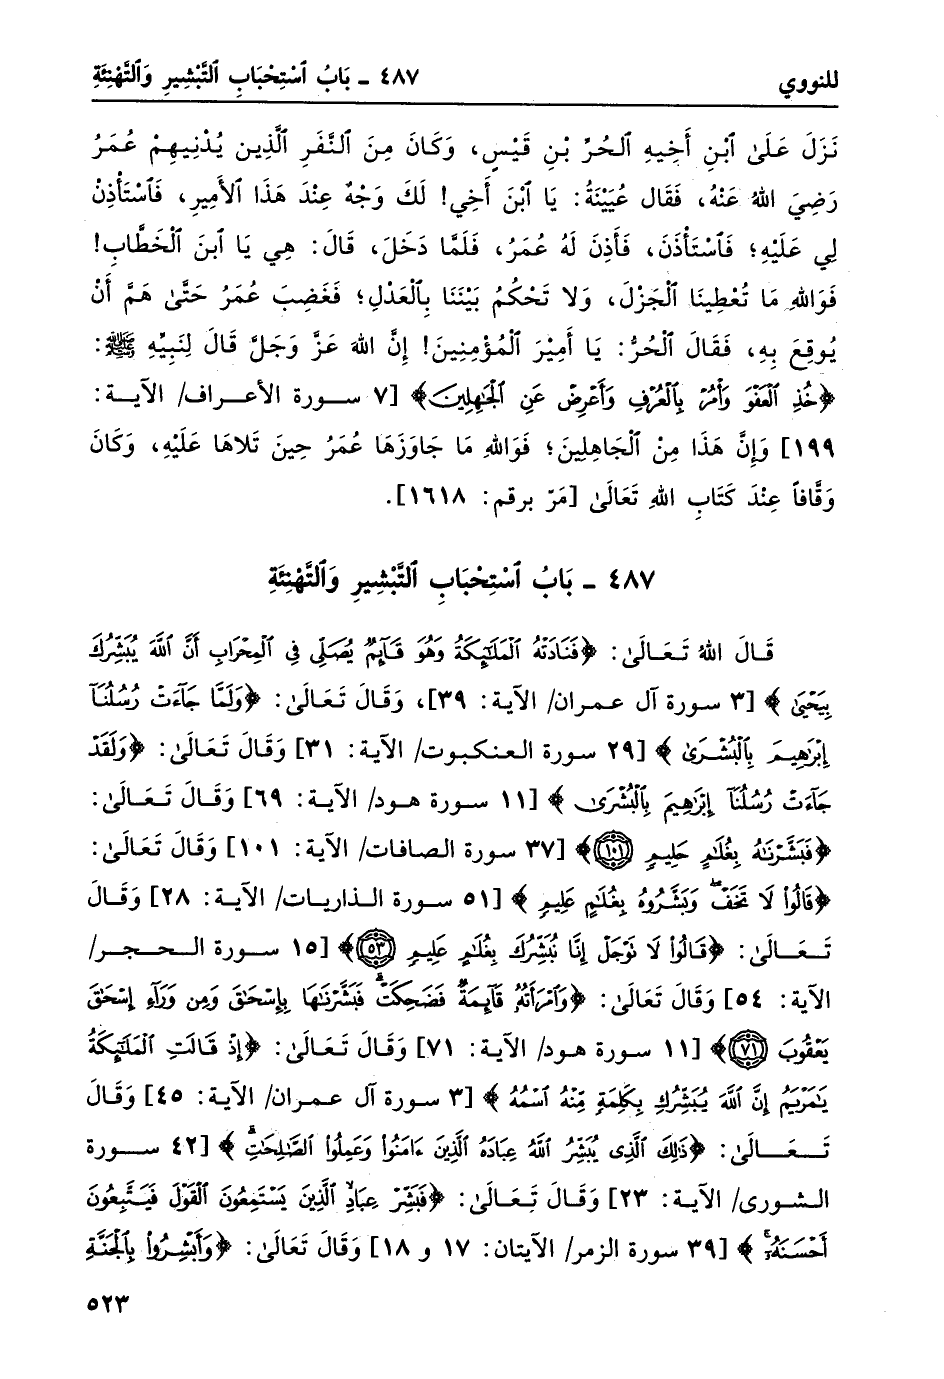 للنووي ٤٨٧ ـ بَابُ ٱسْتِحْبَابِ ٱلتَّبْشِيرِ وَٱلتَّهْنِئَةِ
نَزَلَ عَلَىٰ ٱبْنِ أَخِيهِ ٱلحُرِّ بْنِ قَيْسٍ، وَكَانَ مِنَ ٱلنَّفَرِ ٱلَّذِين يُدْنِيهِمْ عُمَرُ
رَضِيَ ٱللهُ عَنْهُ، فَقَال عُيَيْنَةُ: يَا ٱبْنَ أَخِي! لَكَ وَجْهٌ عِنْدَ هَذَا ٱلأَمِيرِ، فَٱسْتَأْذِنْ
لِي عَلَيْهِ؛ فَٱسْتَأْذَنَ، فَأَذِنَ لَهُ عُمَرُ، فَلَمَّا دَخَلَ، قَالَ: هِي يَا ٱبنَ ٱلْخَطَّابِ!
فَوَٱللهِ مَا تُعْطِينَا ٱلْجَزْلَ، وَلا تَحْكُمُ بَيْنَنَا بِٱلْعَدْلِ؛ فَغَضِبَ عُمَرُ حَتَّىٰ هَمَّ أَنْ
يُوقِعَ بِهِ، فَقَالَ ٱلْحُرُّ: يَا أَمِيْرَ ٱلْمُؤْمِنِينَ! إِنَّ ٱللهَ عَزَّ وَجَلَّ قَالَ لِنَبِيِّهِ ﷺ:
﴿خُذِ ٱلْعَفْوَ وَأْمُرْ بِٱلْعُرْفِ وَأَعْرِضْ عَنِ ٱلْجَٰهِلِينَ﴾ [٧ سـورة الأعـراف/ الآيـة:
١٩٩] وَإِنَّ هَذَا مِنْ ٱلْجَاهِلِينَ؛ فَوَٱللهِ مَا جَاوَزَهَا عُمَرُ حِينَ تَلاهَا عَلَيْهِ، وَكَانَ
وَقَّافاً عِنْدَ كَتَابِ ٱللهِ تَعَالَىٰ [مَرّ برقم: ١٦١٨].
٤٨٧ ـ بَابُ ٱسْتِحْبَابِ ٱلتَّبْشِيرِ وَٱلتَّهْنِئَةِ
قَـالَ ٱللهُ تَعَـالَىٰ: ﴿فَنَادَتْهُ ٱلْمَلَٰٓئِكَةُ وَهُوَ قَآئِمٌ يُصَلِّى فِى ٱلْمِحْرَابِ أَنَّ ٱللَّهَ يُبَشِّرُكَ
بِيَحْيَىٰ﴾ [٣ سـورة آل عمـران/ الآيـة: ٣٩]، وَقَـالَ تَعَـالَىٰ: ﴿وَلَمَّا جَآءَتْ رُسُلُنَآ
إِبْرَٰهِيمَ بِٱلْبُشْرَىٰ﴾ [٢٩ سورة العنكبوت/ الآية: ٣١] وَقَالَ تَعَالَىٰ: ﴿وَلَقَدْ
جَآءَتْ رُسُلُنَآ إِبْرَٰهِيمَ بِٱلْبُشْرَىٰ﴾ [١١ سـورة هـود/ الآيـة: ٦٩] وَقَـالَ تَعَـالَىٰ:
﴿فَبَشَّرْنَٰهُ بِغُلَٰمٍ حَلِيمٍ ١٠١﴾ [٣٧ سورة الصـافات/ الآية: ١٠١] وَقَالَ تَعَالَىٰ:
﴿قَالُوا۟ لَا تَخَفْ ۖ وَبَشَّرُوهُ بِغُلَٰمٍ عَلِيمٍ﴾ [٥١ سـورة الـذاريـات/ الآية: ٢٨] وَقَـالَ
تَعَـالَىٰ: ﴿قَالُوا۟ لَا تَوْجَلْ إِنَّا نُبَشِّرُكَ بِغُلَٰمٍ عَلِيمٍ ٥٣﴾ [١٥ سـورة الـحـجـر/
الآية: ٥٤] وَقَالَ تَعَالَىٰ: ﴿وَٱمْرَأَتُهُۥ قَآئِمَةٌ فَضَحِكَتْ فَبَشَّرْنَٰهَا بِإِسْحَٰقَ وَمِن وَرَآءِ إِسْحَٰقَ
يَعْقُوبَ ٧١﴾ [١١ سورة هـود/ الآيـة: ٧١] وَقَالَ تَعَـالَىٰ: ﴿إِذْ قَالَتِ ٱلْمَلَٰٓئِكَةُ
يَٰمَرْيَمُ إِنَّ ٱللَّهَ يُبَشِّرُكِ بِكَلِمَةٍ مِّنْهُ ٱسْمُهُ﴾ [٣ سـورة آل عمـران/ الآية: ٤٥] وَقَـالَ
تَـعَـالَىٰ: ﴿ذَٰلِكَ ٱلَّذِى يُبَشِّرُ ٱللَّهُ عِبَادَهُ ٱلَّذِينَ ءَامَنُوا۟ وَعَمِلُوا۟ ٱلصَّٰلِحَٰتِ ۗ﴾ [٤٢ سـورة
الشورى/ الآيـة: ٢٣] وَقَالَ تَعَـالَىٰ: ﴿فَبَشِّرْ عِبَادِ ٱلَّذِينَ يَسْتَمِعُونَ ٱلْقَوْلَ فَيَتَّبِعُونَ
أَحْسَنَهُۥٓ﴾ [٣٩ سورة الزمر/ الآيتان: ١٧ و ١٨] وَقَالَ تَعَالَىٰ: ﴿وَأَبْشِرُوا۟ بِٱلْجَنَّةِ
٥٢٣